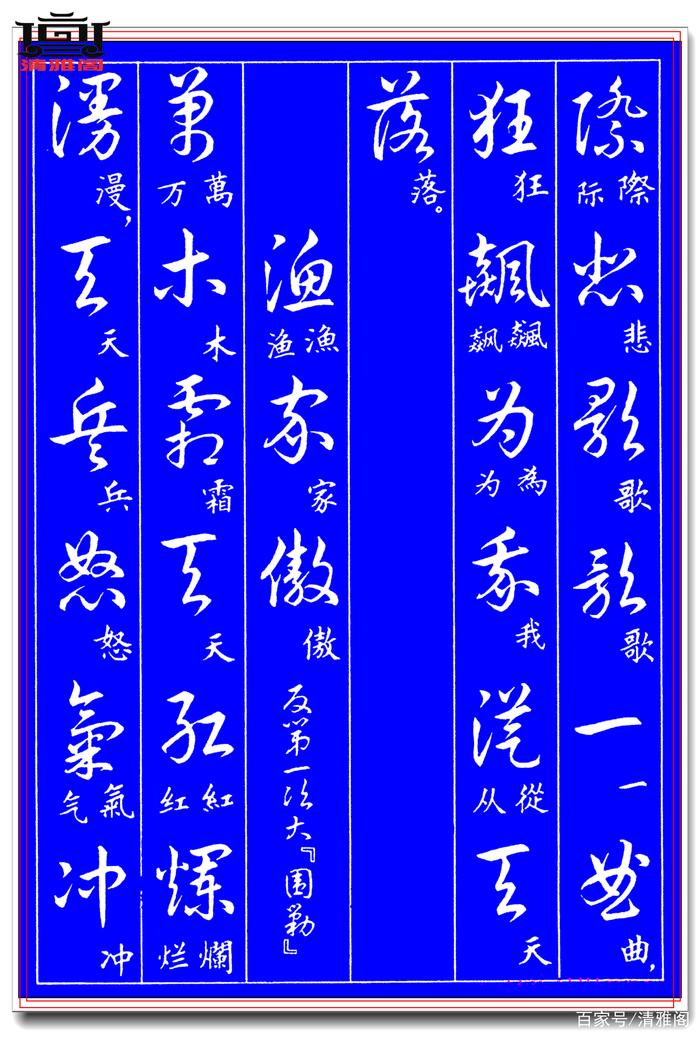 清雅阁
際悲歌歌一曲
際际 悲 歌 歌 一 曲,
狂飆为我從天
狂 飆飙 為为 我 從从 天
落
落。
渔家傲
漁渔 家 傲
反第一次大『围勦』
萬木霜天紅爛
萬万 木 霜 天 紅红 爛烂
漫天兵怒氣冲
漫, 天 兵 怒 氣气 冲
百家号/清雅阁